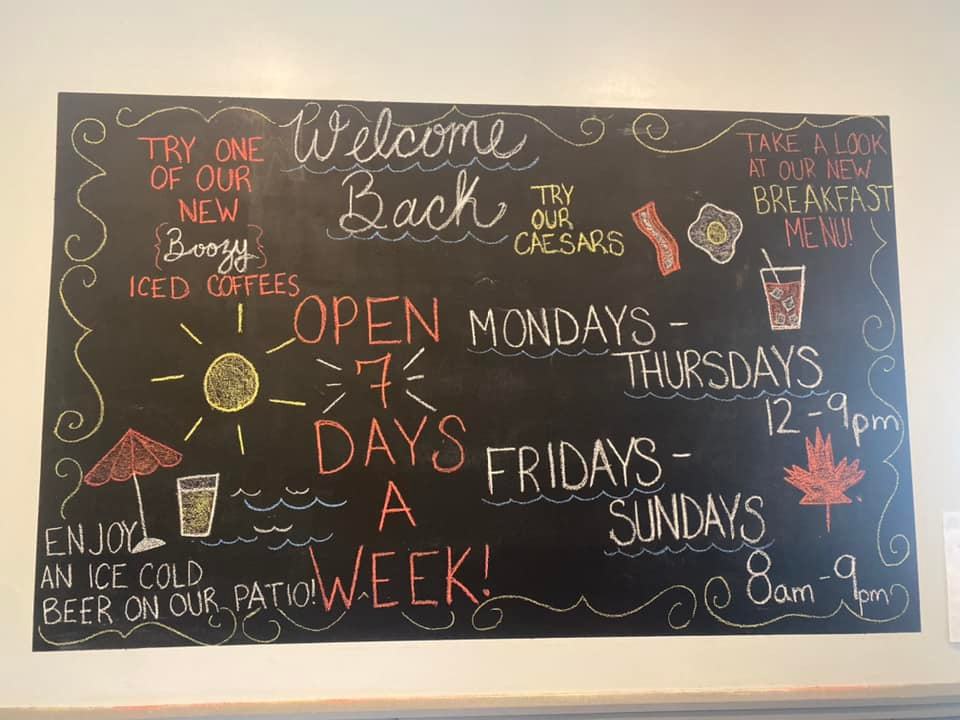 Welcome
Back
TRY ONE
OF OUR
NEW
{Boozy}
ICED COFFEES
TRY
OUR
CAESARS
TAKE A LOOK
AT OUR NEW
BREAKFAST
MENU!
OPEN
7
DAYS
A
WEEK!
MONDAYS -
THURSDAYS
12 - 9pm
FRIDAYS -
SUNDAYS
8am - 9pm
ENJOY
AN ICE COLD
BEER ON OUR PATIO!